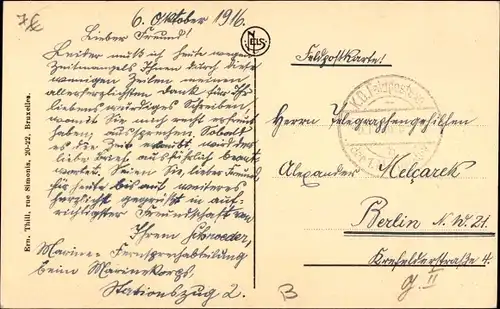 6. Oktober 1916.
Lieber Freund!
Leider muß ich heute wegen
Zeitmangels Ihnen durch diese
wenigen Zeilen meinen
allerherzlichsten Dank für Ihr
liebenswürdiges Schreiben,
womit Sie mich recht erfreut
haben, aussprechen. Sobald
es die Zeit erlaubt, wird der
liebe Brief ausführlich beant-
wortet. Seien Sie, lieber Freund,
für heute bis auf weiteres
herzlichst gegrüßt in auf-
richtigster Freundschaft von
Ihrem Schroeder,
Marine-Fernsprechabteilung
beim Marinekorps.
Stationszug 2.
Ern. Thill, rue Simonis, 20-22, Bruxelles.
NELS
Feldpostkarte!
Herrn Telegraphengehilfen
Alexander Melçarek
Berlin N.W. 21.
Krefelderstraße 4.
g. II
B